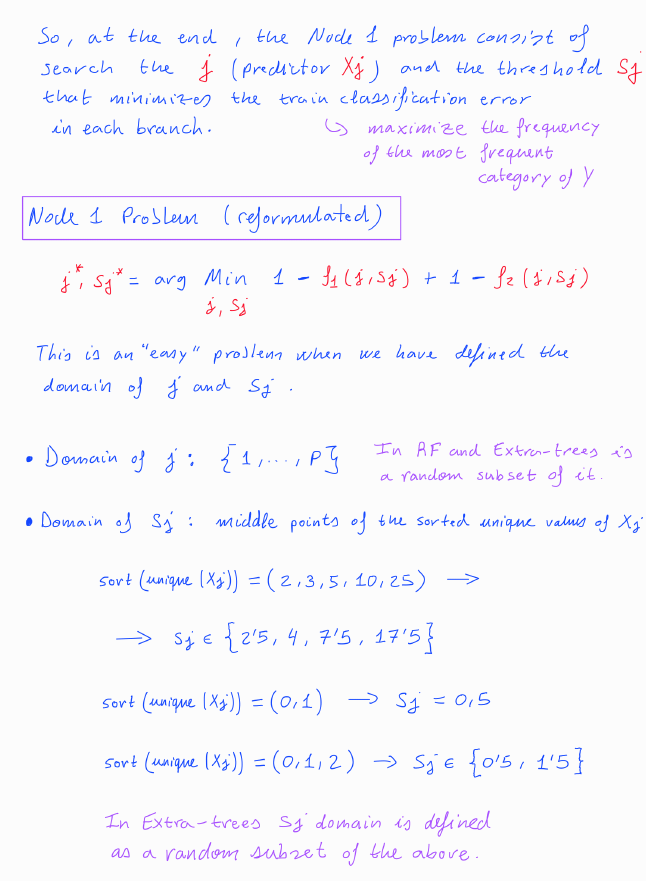 So, at the end, the Node 1 problem consist of
search the j (predictor Xj) and the threshold Sj
that minimizes the train classification error
in each branch.
↳ maximize the frequency
of the most frequent
category of Y
Node 1 Problem (reformulated)
j*, Sj* = arg Min 1 - f1(j,Sj) + 1 - f2(j,Sj)
j, Sj
This is an "easy" problem when we have defined the
domain of j and Sj.
• Domain of j : {1,...,p}
In RF and Extra-trees is
a random subset of it.
• Domain of Sj : middle points of the sorted unique values of Xj
sort(unique(Xj)) = (2,3,5,10,25) →
→ Sj ∈ {2'5, 4, 7'5, 17'5}
sort(unique(Xj)) = (0,1) → Sj = 0,5
sort(unique(Xj)) = (0,1,2) → Sj ∈ {0'5, 1'5}
In Extra-trees Sj domain is defined
as a random subset of the above.